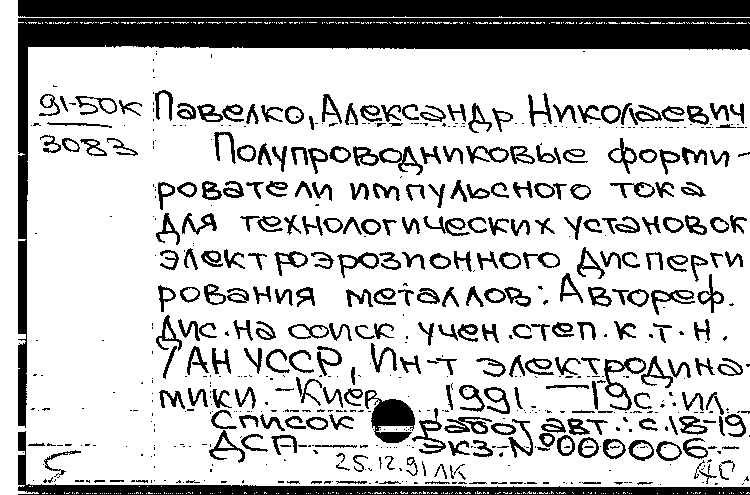 91-50К Павелко, Александр Николаевич
3083 Полупроводниковые форми-
рователи импульсного тока
для технологических установок
электроэрозионного дисперги
рования металлов: Автореф.
дис. на соиск. учен. степ. к. т. н.
/ АН УССР, Ин-т электродина-
мики. - Киев, 1991. - 19с.: ил.
Список работ авт.: с. 18-19
ДСП. Экз. № 000006. -
25.12.91 ЛК